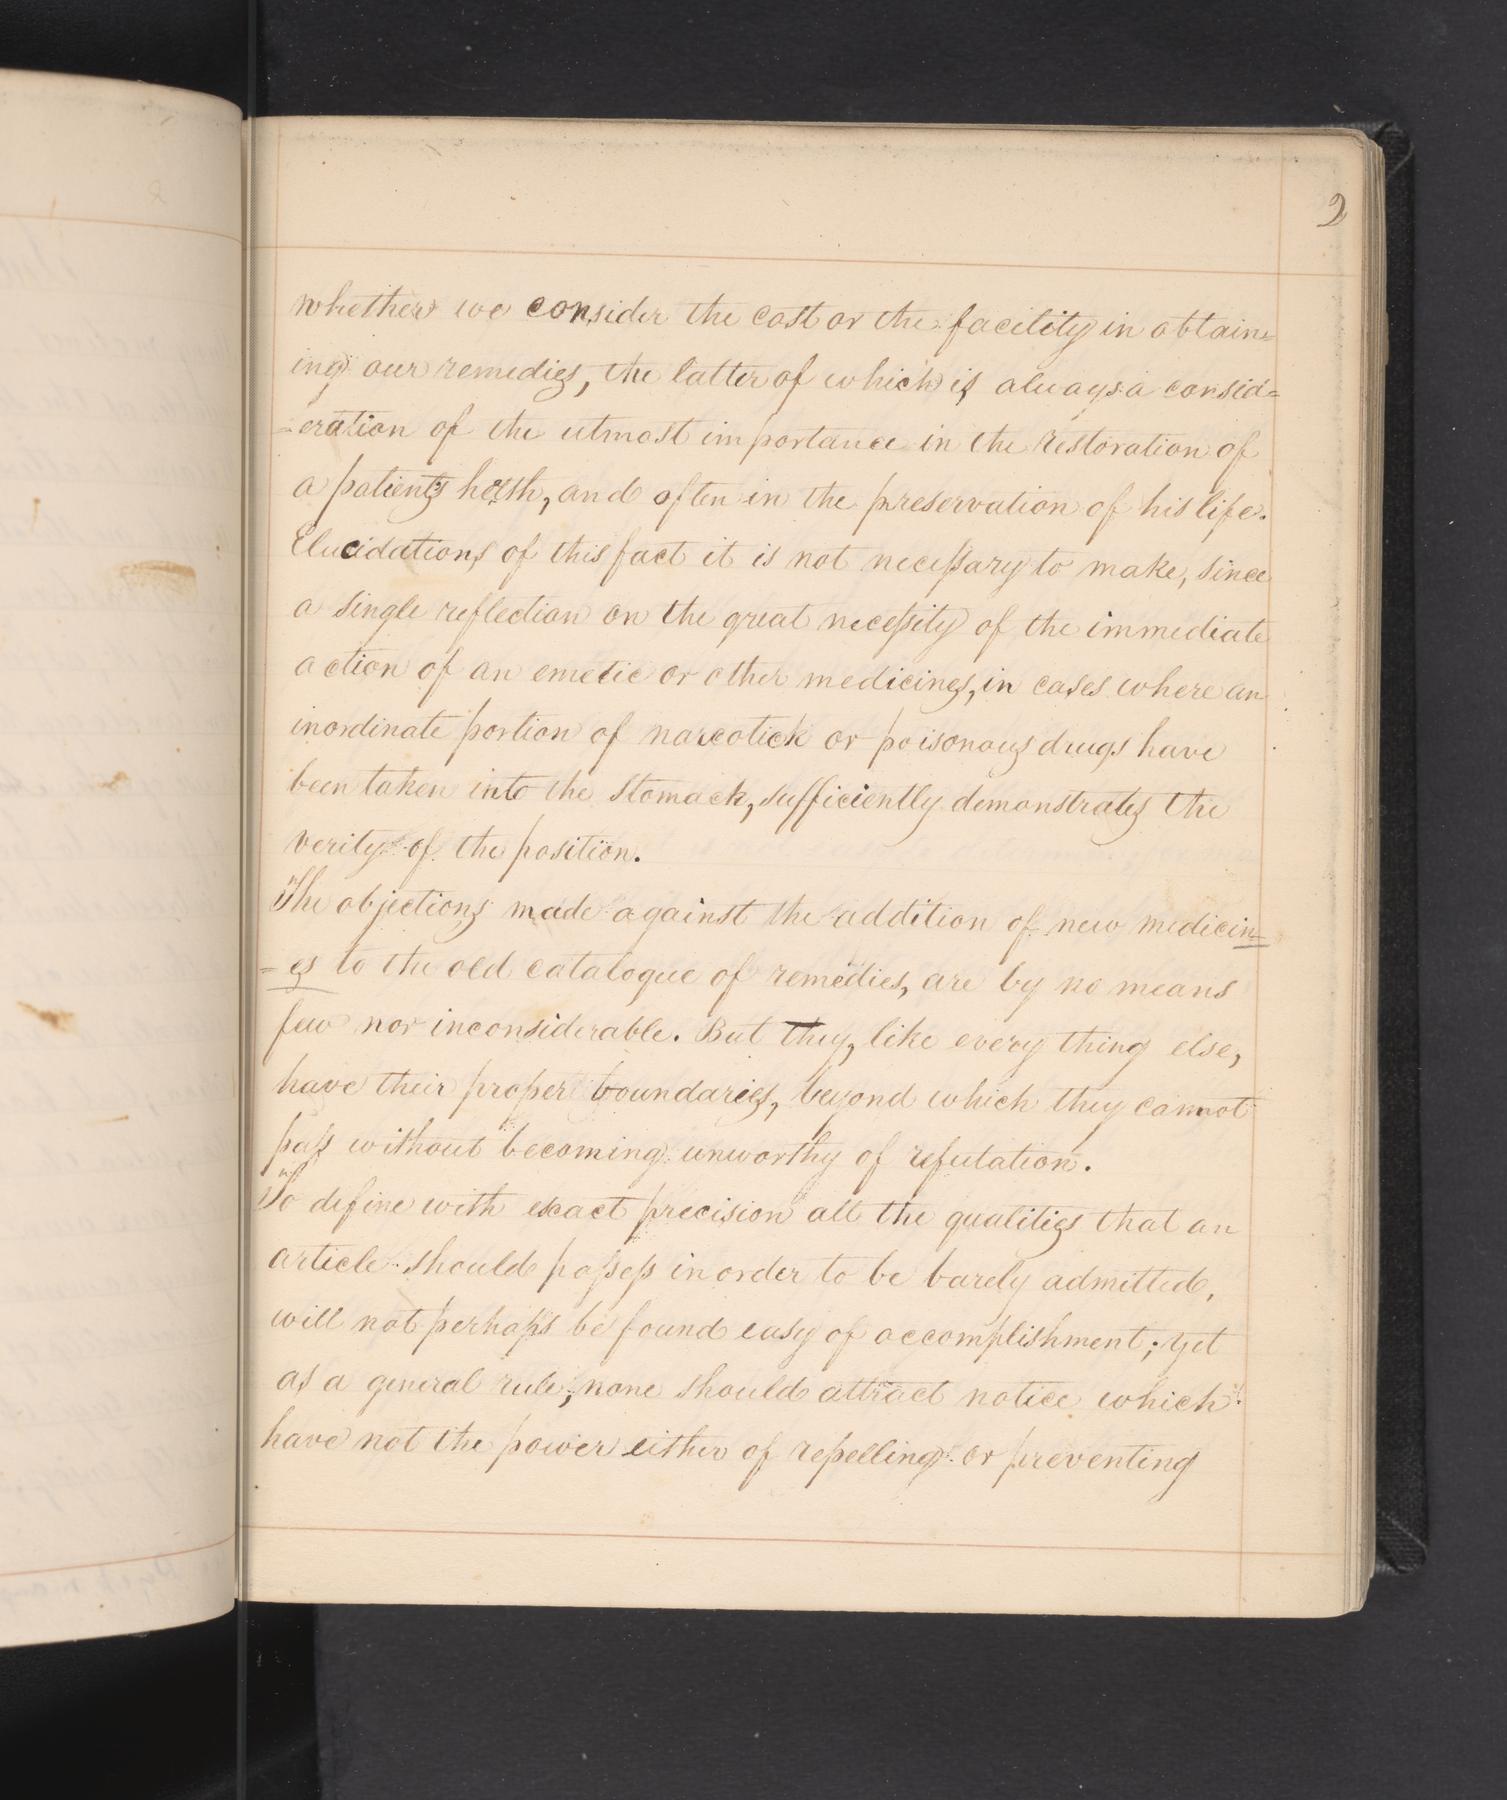 2
whether we consider the cost or the facility in obtain=
ing our remedies, the latter of which is always a consid=
=eration of the utmost importance in the restoration of
a patients helth, and often in the preservation of his life.
Elucidations of this fact it is not necessary to make, since
a single reflection on the great necessity of the immediate
action of an emetic or other medicines, in cases where an
inordinate portion of narcotick or poisonous drugs have
been taken into the stomack, sufficiently demonstrates the
verity of the position.
The objections made against the addition of new medicin=
=es to the old catalogue of remedies, are by no means
few nor inconsiderable. But they, like every thing else,
have their proper boundaries, beyond which they cannot
pass without becoming unworthy of refutation.
To define with exact precision all the qualities that an
article should possess in order to be barely admitted,
will not perhaps be found easy of accomplishment; yet
as a general rule, none should attract notice which
have not the power either of repelling or preventing